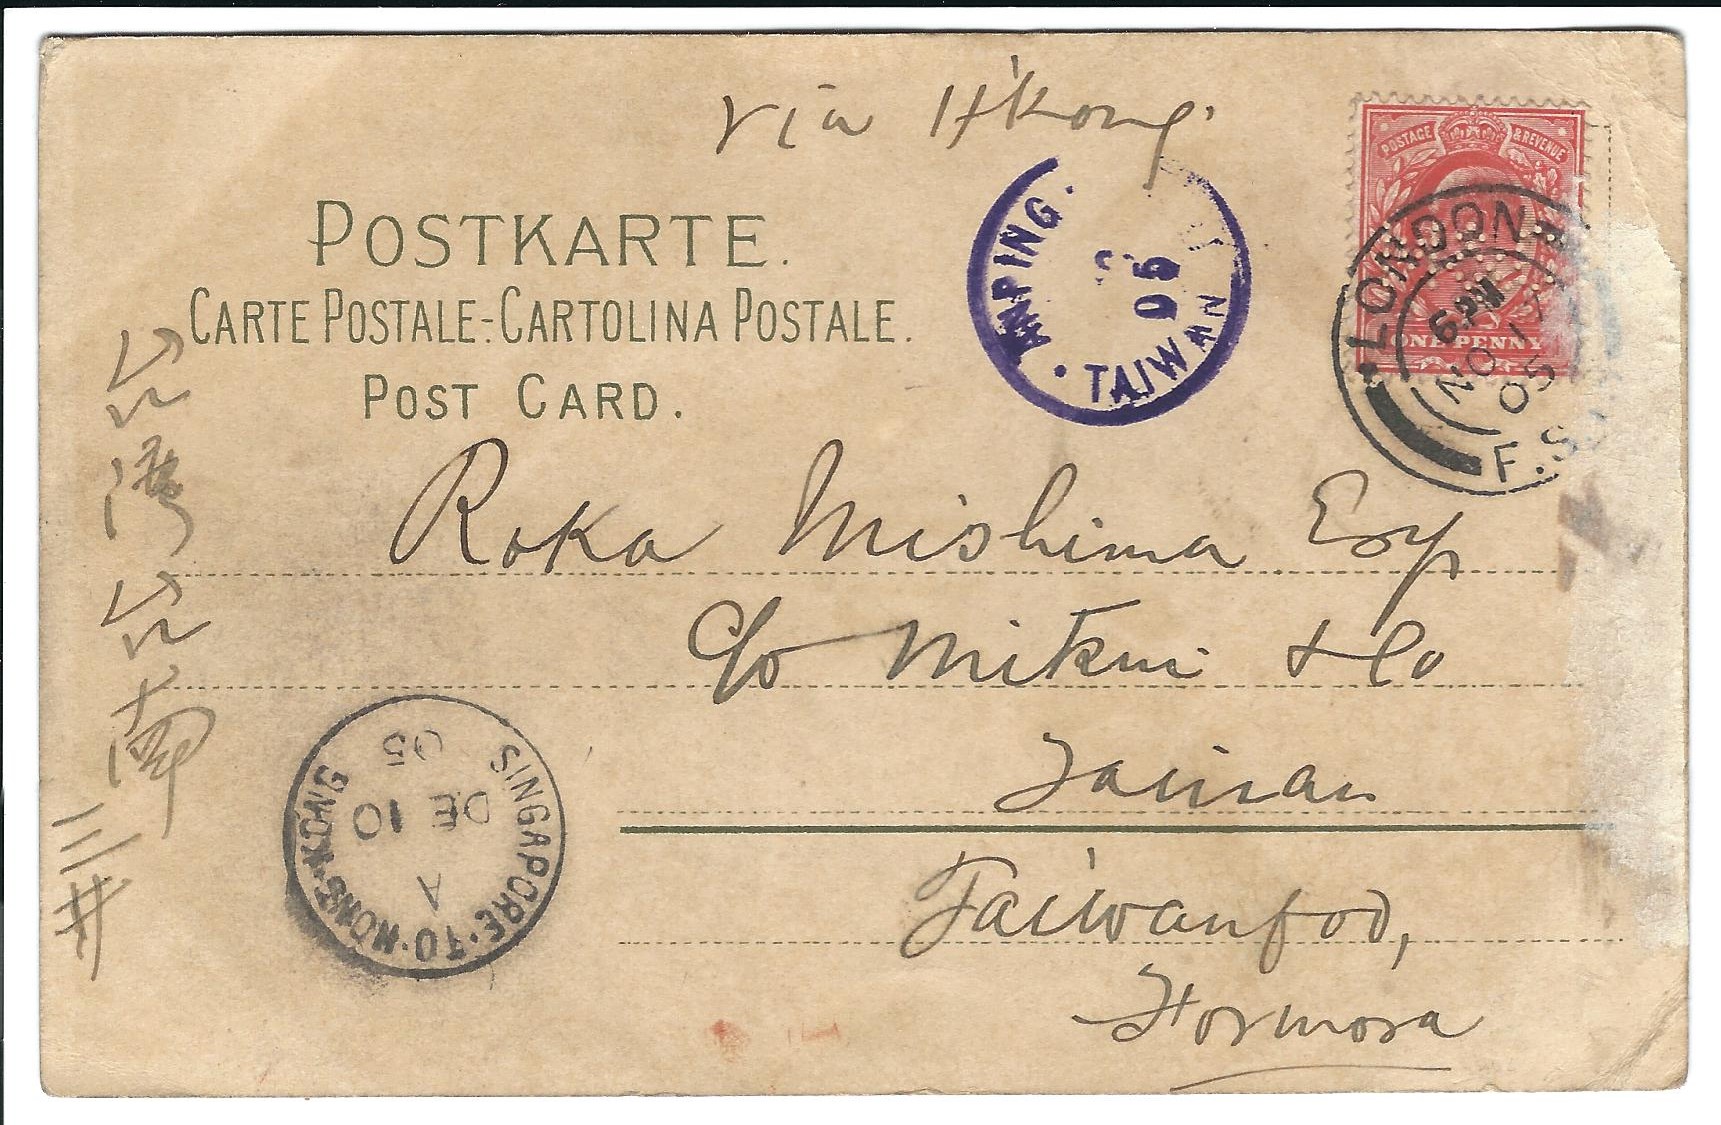 via H'Kong.
POSTAGE & REVENUE
ONE PENNY
LONDON
6 PM
NO 17
05
F.S.
ANPING
05
TAIWAN
POSTKARTE.
CARTE POSTALE-CARTOLINA POSTALE.
POST CARD.
Roka Mishima Esq
c/o Mitsui & Co
Tainan
Taiwanfoo,
Formosa
台湾台南三井
SINGAPORE·TO·HONG·KONG
A
DE 10
05